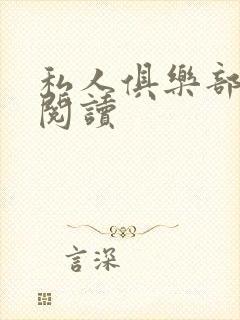 私人俱樂部
閱讀
言深